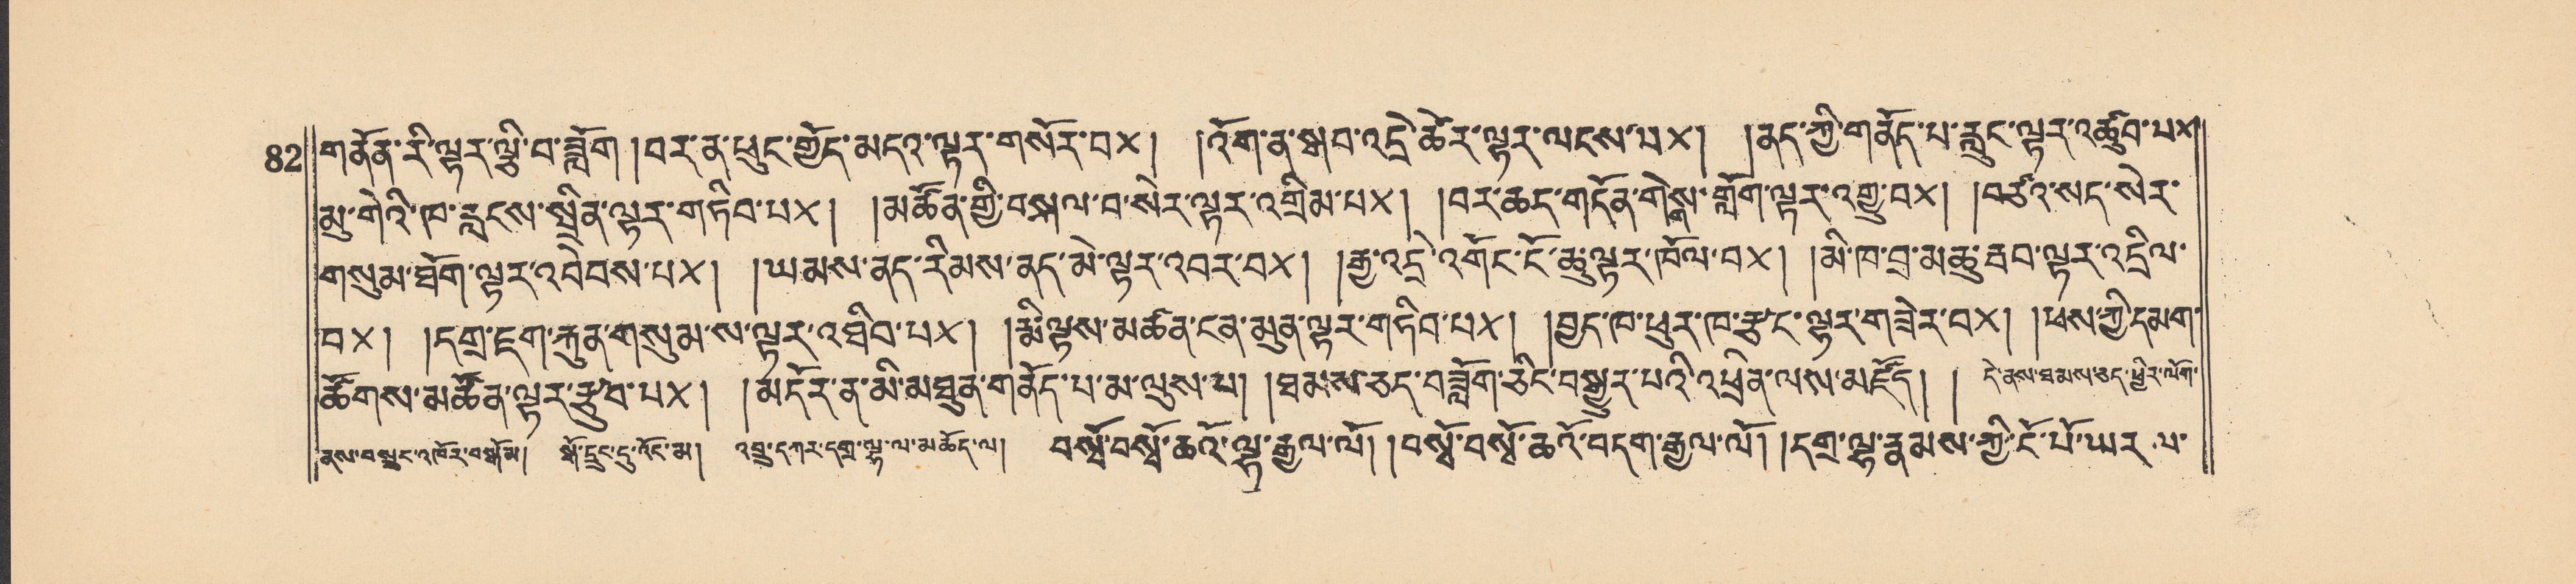 82 གནོན་རི་ལྟར་ལྕི་བ་བཟློག །བར་ན་ཕྱུང་གྱོད་མདའ་ལྟར་གསོར་བ༌x། །འོག་ན་སྒབ་འདྲེ་ཚེར་ལྟར་ལངས་པ་x། །ནད་ཀྱི་གནོད་པ་རླུང་ལྟར་འཚུབ་པx།
མུ་གེའི་ཁ་རླངས་སྤྲིན་ལྟར་གཏིབ་པ་x། །མཚོན་གྱི་བསྐལ་བ་སེར་ལྟར་འགྲིམ་པ་x། །བར་ཆད་གདོན་གེགས་གློག་ལྟར་འགྱུ་བ་x། །བཙའ་སད་སེར་
གསུམ་ཐོག་ལྟར་འབེབས་པ་x། །ཡམས་ནད་རིམས་ནད་མེ་ལྟར་འབར་བ་x། །རྒྱ་འདྲེ་འགོང་པོ་ཆུ་ལྟར་ཁོལ་བ་x། །མི་ཁ་བྲ་མཆུ་རྦབ་ལྟར་འདྲིལ་
བ་x། །དགྲ་ཇག་རྐུན་གསུམ་ས་ལྟར་འཐིབ་པ་x། །རྨི་ལྟས་མཚན་ངན་མུན་ལྟར་གཏིབ་པ་x། །བྱད་ཁ་ཕུར་ཁ་རྩང་ལྟར་གཟེར་བ་x། །ཕས་ཀྱི་དམག་
ཚོགས་མཚོན་ལྟར་རྩུབ་པ་x། །མདོར་ན་མི་མཐུན་གནོད་པ་མ་ལུས་པ། །ཐམས་ཅད་བཟློག་ཅིང་བསྒྱུར་པའི་འཕྲིན་ལས་མཛོད། ། དེ་ནས་ཐམས་ཅད་ཕྱིར་ལོག་
ནས་བསྲུང་འཁོར་བསྒོམ། སྒོ་དྲུང་དུ་འོང་མ། འབྲུ་དཀར་དགྲ་ལྷ་ལ་མཆོད་ལ། བསྭོ་བསྭོ་ཆའོ་ལྷ་རྒྱལ་ལོ། །བསྭོ་བསྭོ་ཆའོ་བདག་རྒྱལ་ལོ། །དགྲ་ལྷ་རྣམས་ཀྱི་ངོ་པོ་ཡར་ལ་